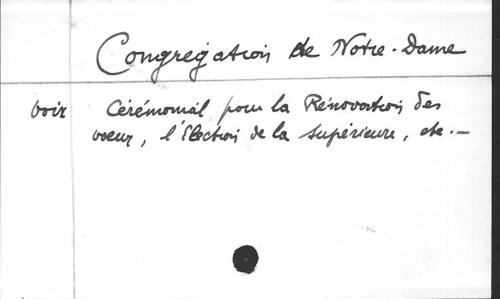 Congregation de Notre-Dame
voir Cérémonial pour la Rénovation des
voeux, l'Election de la Supérieure, etc.-